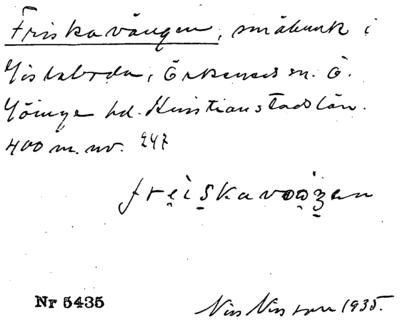 Friskavången, småbruk i
Gislaboda, Örkeneds sn. Ö.
Göinge hd. Kristianstads län.
400 m. nv. 247
Nr 5435
Nils Nilsson 1935.